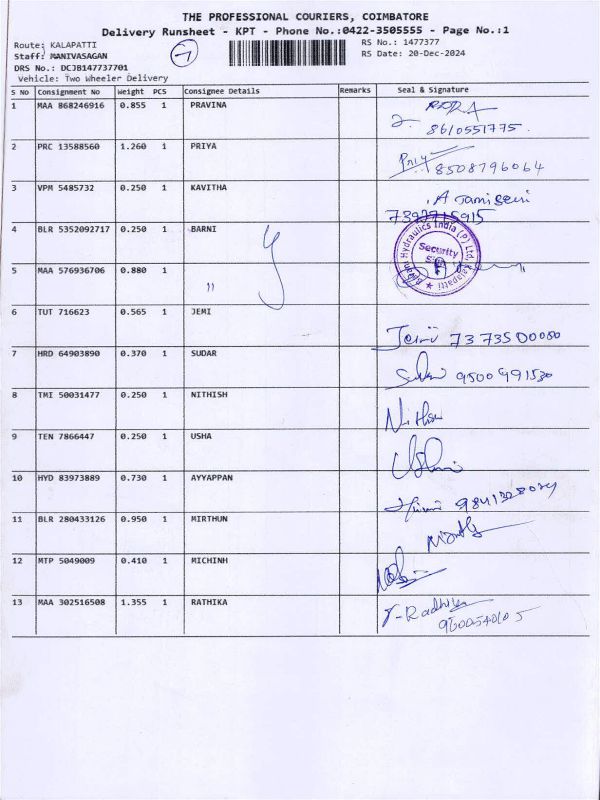 THE PROFESSIONAL COURIERS, COIMBATORE
Delivery Runsheet - KPT - Phone No.:0422-3505555 - Page No.:1
Route: KALAPATTI
RS No.: 1477377
Staff: MANIVASAGAN
RS Date: 20-Dec-2024
DRS No.: DCJB147737701
Vehicle: Two Wheeler Delivery
S No Consignment No Weight PCS Consignee Details Remarks Seal & Signature
1 MAA 868246916 0.855 1 PRAVINA
8610551775
2 PRC 13588560 1.260 1 PRIYA Priy 8508796064
3 VPM 5485732 0.250 1 KAVITHA
4 BLR 5352092717 0.250 1 BARNI
Hydraulics India (P) Ltd.
Security
5 MAA 576936706 0.880 1 "
6 TUT 716623 0.565 1 JEMI Jemi 7373500080
7 HRD 64903890 0.370 1 SUDAR 9500491530
8 TMI 50031477 0.250 1 NITHISH Nithis
9 TEN 7866447 0.250 1 USHA Usha
10 HYD 83973889 0.730 1 AYYAPPAN
11 BLR 280433126 0.950 1 MIRTHUN
12 MTP 5049009 0.410 1 MICHINH
13 MAA 302516508 1.355 1 RATHIKA T-Radhika